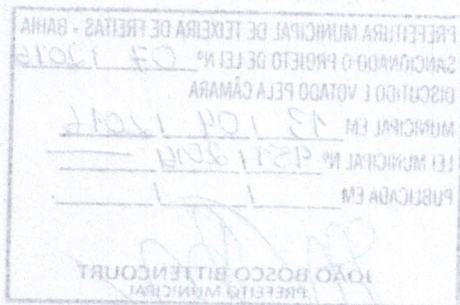 PREFEITURA MUNICIPAL DE TEIXEIRA DE FREITAS - BAHIA
SANCIONADO O PROJETO DE LEI Nº 07 / 2016
DISCUTIDO E VOTADO PELA CÂMARA
MUNICIPAL EM 13 / 04 / 2016
LEI MUNICIPAL Nº / 2016
PUBLICADA EM / /
JOÃO BOSCO BITTENCOURT
PREFEITO MUNICIPAL